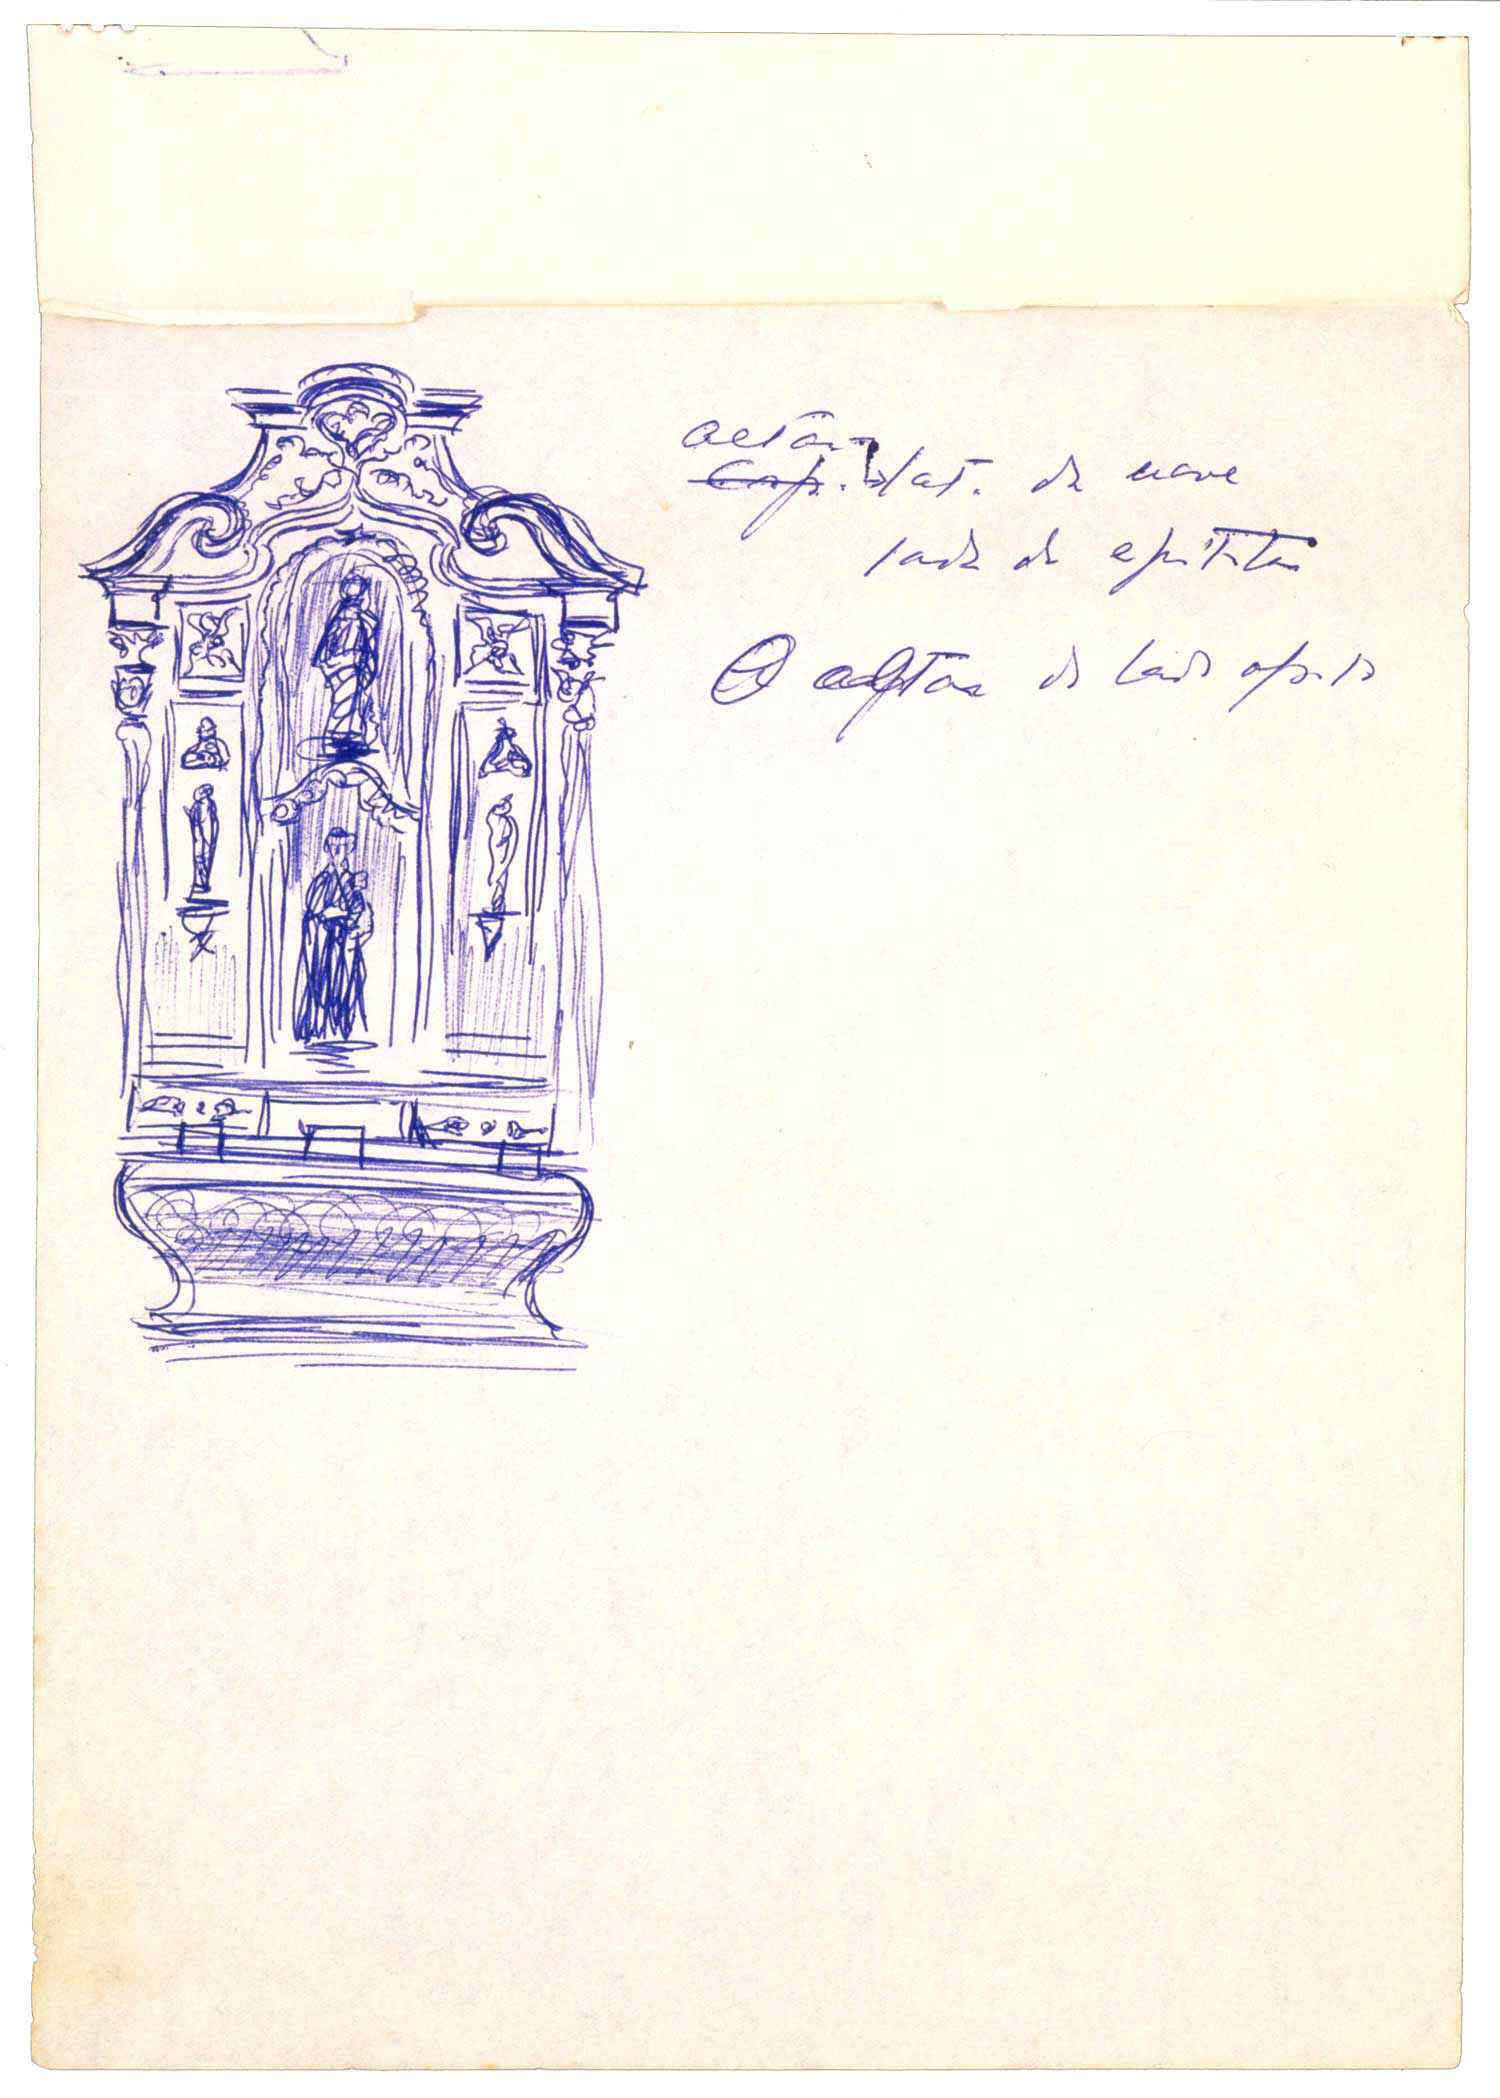 altar
Cap. lat. da nave
lado da epístola
O altar do lado oposto